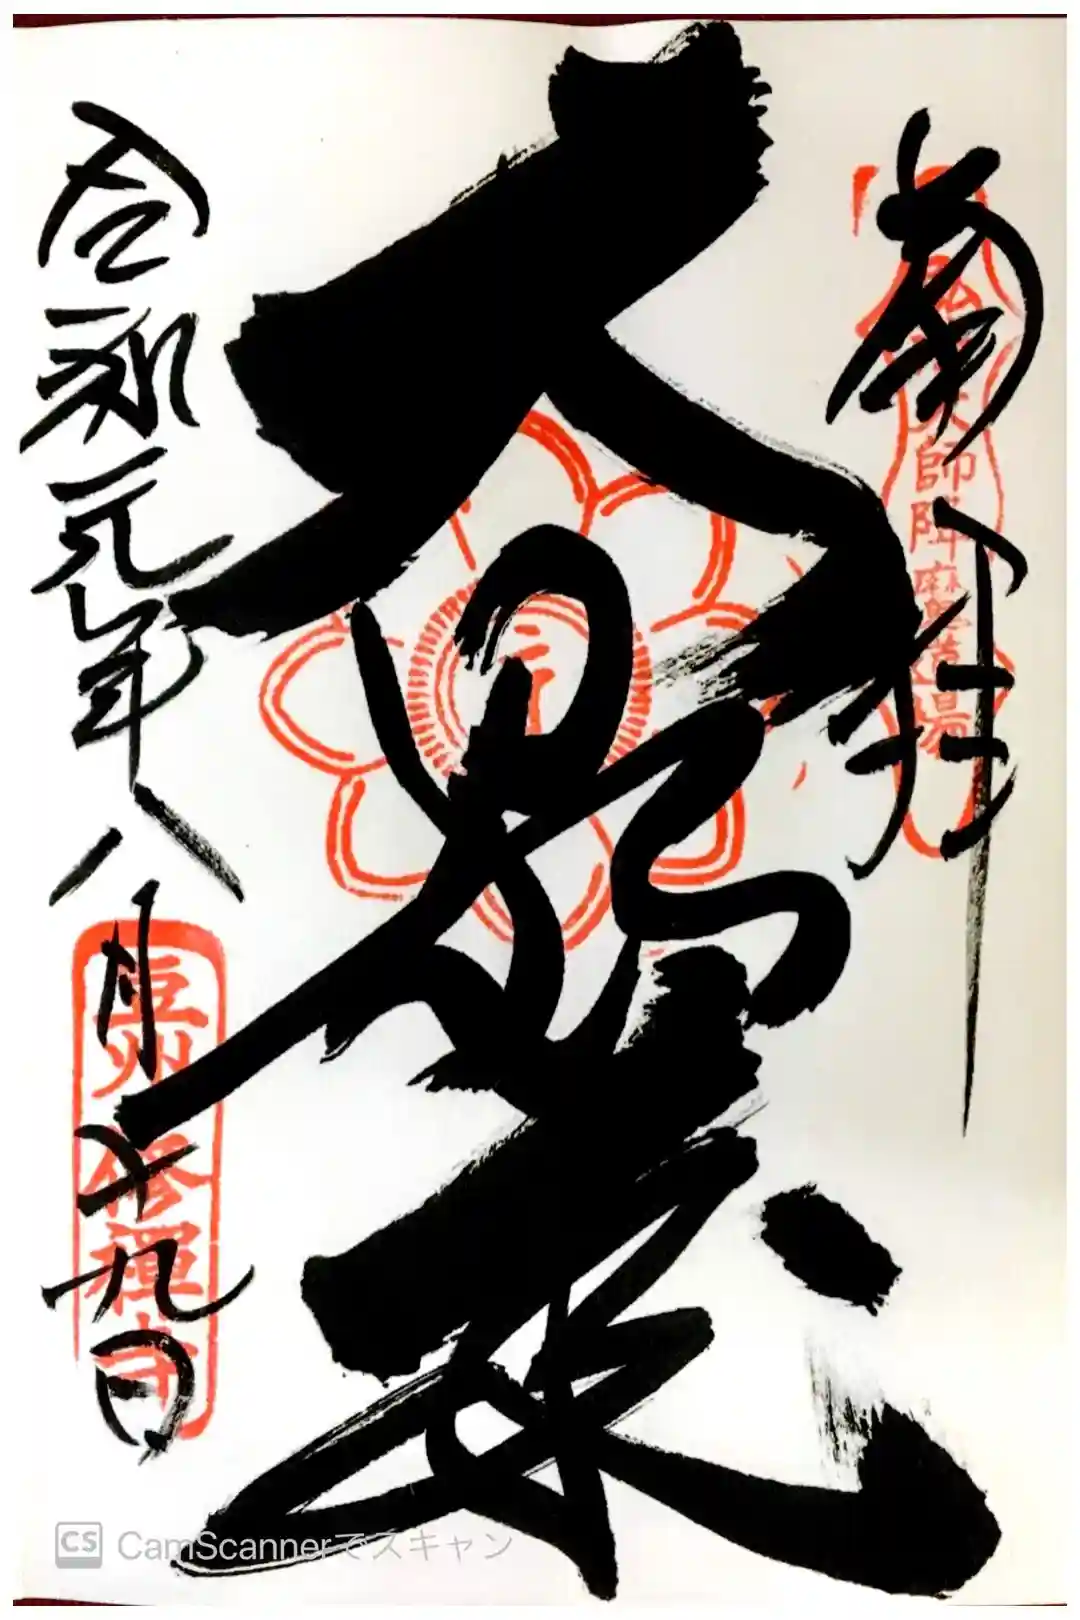 奉拝
大師降魔 場
大日如来
令和元年八月十九日
豆州修禪寺
CS CamScannerでスキャン